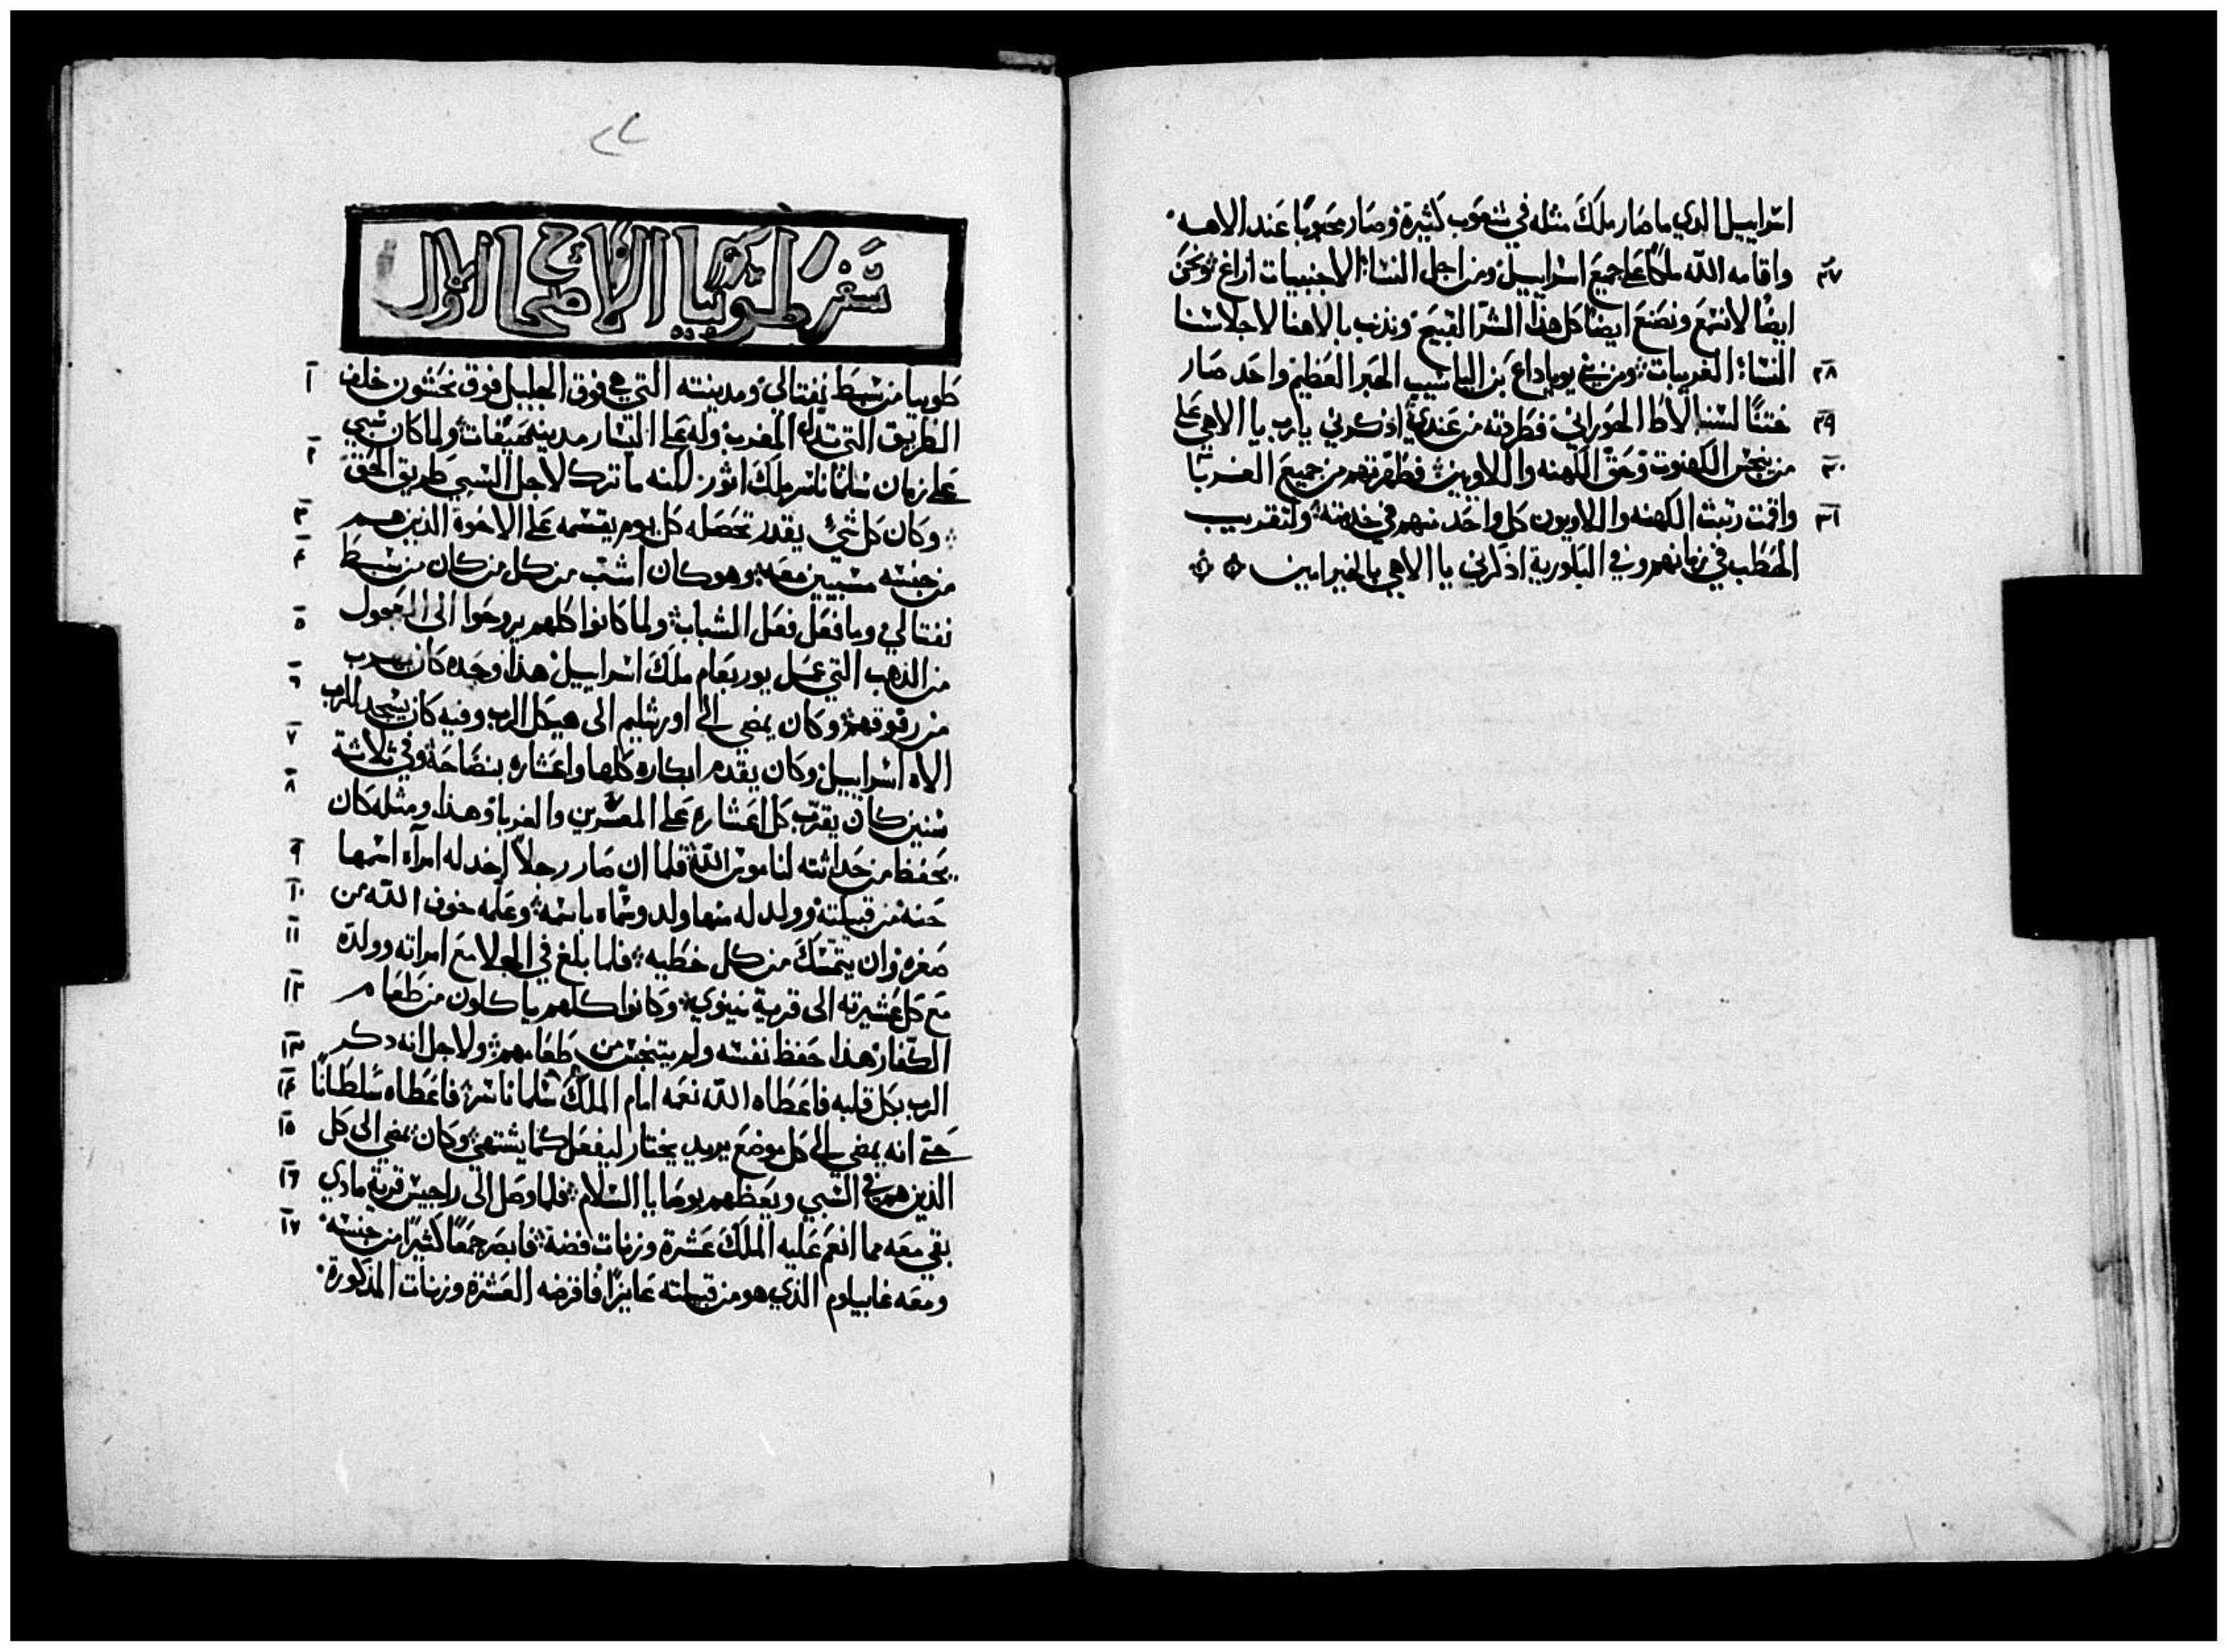 اسراييل الدي ما صار ملك مثله في شعوب كثيرة وصار محبوبا عند الاهه
٢٧ واقامه الله ملكا على جميع اسراييل ومن اجل النساء الاجنبيات ازاغ ونحن
ايضا لا نسمع ونصنع ايضا كل هذا الشر القبيح ونذنب بالاهنا لاجل
٢٨ النساء الغريبات ومن بني يوياداع بن الياشيب الحبر العظيم واحد صار
٢٩ ختنا الحوراني فطردته من عندي اذكرني يا رب يا الاهي على
٣٠ من ينجس الكهنوت وحق الكهنه واللاويين فطهرتهم من جميع الغربا
٣١ واقمت رتبت الكهنه واللاويون كل واحد منهم في خدمته ولتقريب
الحطب في زمانهم وفي الباكورية اذكرني يا الاهي بالخير امين
سفر طوبيا الاصحاح الاول
١ طوبيا من سبط نفتالي ومدينته التي هي فوق الجليل فوق نحشون خلف
٢ الطريق التي المغرب وله على اليسار مدينه ولما كان سبي
على زمان ملك اثور لكنه ما ترك لاجل السبي طريق الحق
٣ وكان كل شي يقدر تحصله كل يوم يقسمه على الاخوة الذين هم
٤ من جنسه مسبيين معه وهو كان اشب من كل من كان من سبط
٥ نفتالي وما فعل فعل الشباب ولما كانوا كلهم يروحوا الى العجول
٦ من الذهب التي عمل يوربعام ملك اسراييل هذا وحده كان يهرب
من وكان يمضي الى اورشليم الى هيكل الرب وفيه كان يسجد للرب
٧ الاه اسراييل وكان يقدم ابكاره كلها واعشاره وفي ثلاثة
٨ سنين كان يقرب كل اعشاره على والغربا وهذا ومثله كان
٩ يحفظ من حداثته لناموس الله فلما ان صار رجلا اخد له امرآه اسمها
١٠ حنه من قبيلته وولد له منها ولد وسماه باسمه وعلمه خوف الله من
١١ صغره وان يتمسك من كل خطيه فلما بلغ في الجلا مع امراته وولده
١٢ مع كل عشيرته الى قرية نينوي وكانوا كلهم ياكلون من طعام
١٣ الكفار هذا حفظ نفسه ولم يتنجس من طعامهم ولاجل انه دكر
١٤ الرب بكل قلبه فاعطاه الله نعمه امام الملك فاعطاه سلطانا
١٥ حتى انه يمضي الى كل موضع يريد يختار ليفعل كما يشتهي وكان يمضي الى كل
١٦ الذين هم في السبي ويعظهم بوصايا السلام فلما وصل الى راجيس قرية مادي
١٧ بقي معه مما انعم عليه الملك عشرة وزنات فضة فابصر جمعا كثيرا من جنسه
ومعه غابيلوم الذي هو من قبيلته عايزا فاقرضه العشرة وزنات المذكورة